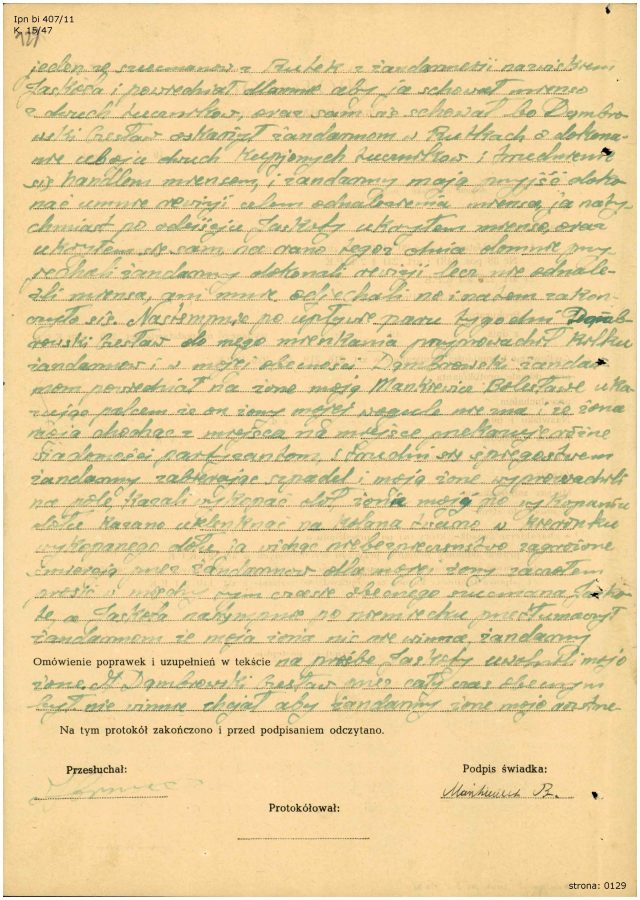 Ipn bi 407/11
K. 15/47
jeden ze szucmanów z Rutek z żandarmerii nazwiskiem
Jaskoła i powiedział dlamnie aby ja schował mienso
z dwuch tucznikow, oraz sam sie schował bo Dąmbro-
wski Czesław oskarżył żandarmom w Rutkach o dokona-
nie uboju dwuch tucznikow i trudnienie
się handlem miensem, i żandarmy mają przyjść doko-
nać umnie rewizji celem odnalezienia miensa, ja natych
chmiast po odejściu Jaskoły ukryłem mienso, oraz
ukryłem się sam, na rano tegoż dnia domnie przy
jechali żandarmy dokonali rewizji lecz nie odnale-
zli miensa, ani mnie odjechali no i natem zakon-
czyło się. Nastempnie po upływie paru tygodni Dąmb-
rowski Czesław do mego mieszkania przyprowadził kilku
żandarmow i w mojej obecności Dąmbrowski żandar-
mom powiedział na żone moją Mankiewicz Bolesławe uka-
zując palcem że on żony mojej wogule nie zna i że żona
moja chodząc z miejsca na miejsce różne
wiadomości partyzantom, i trudni się szpiegostwem
żandarmy zabierając szpadel i moją żone wyprowadzili
na pole kazali wykopać doł, żonie moją po wykopaniu
dołu kazano uklenknąć na kolana w kierunku
wykopanego dołu, ja widząc niebezpieczenstwo zagrożone
śmiercią przez żandarmow dla mojej żony zaczołem
prosić i miendzy tym czasie obecnego szucmana Jasko-
łe, a Jaskoła po niemiecku przetłumaczył
żandarmom że moja żona nic nie winna, żandarmy
Omówienie poprawek i uzupełnień w tekście na prośbe Jaskoły uwolnili moją
żone. A Dąmbrowski Czesław przez cały czas obecnym
był nie chciał aby żandarmy żone moją
Na tym protokół zakończono i przed podpisaniem odczytano.
Przesłuchał:
Podpis świadka:
Mańkiewicz B.
Protokółował:
strona: 0129